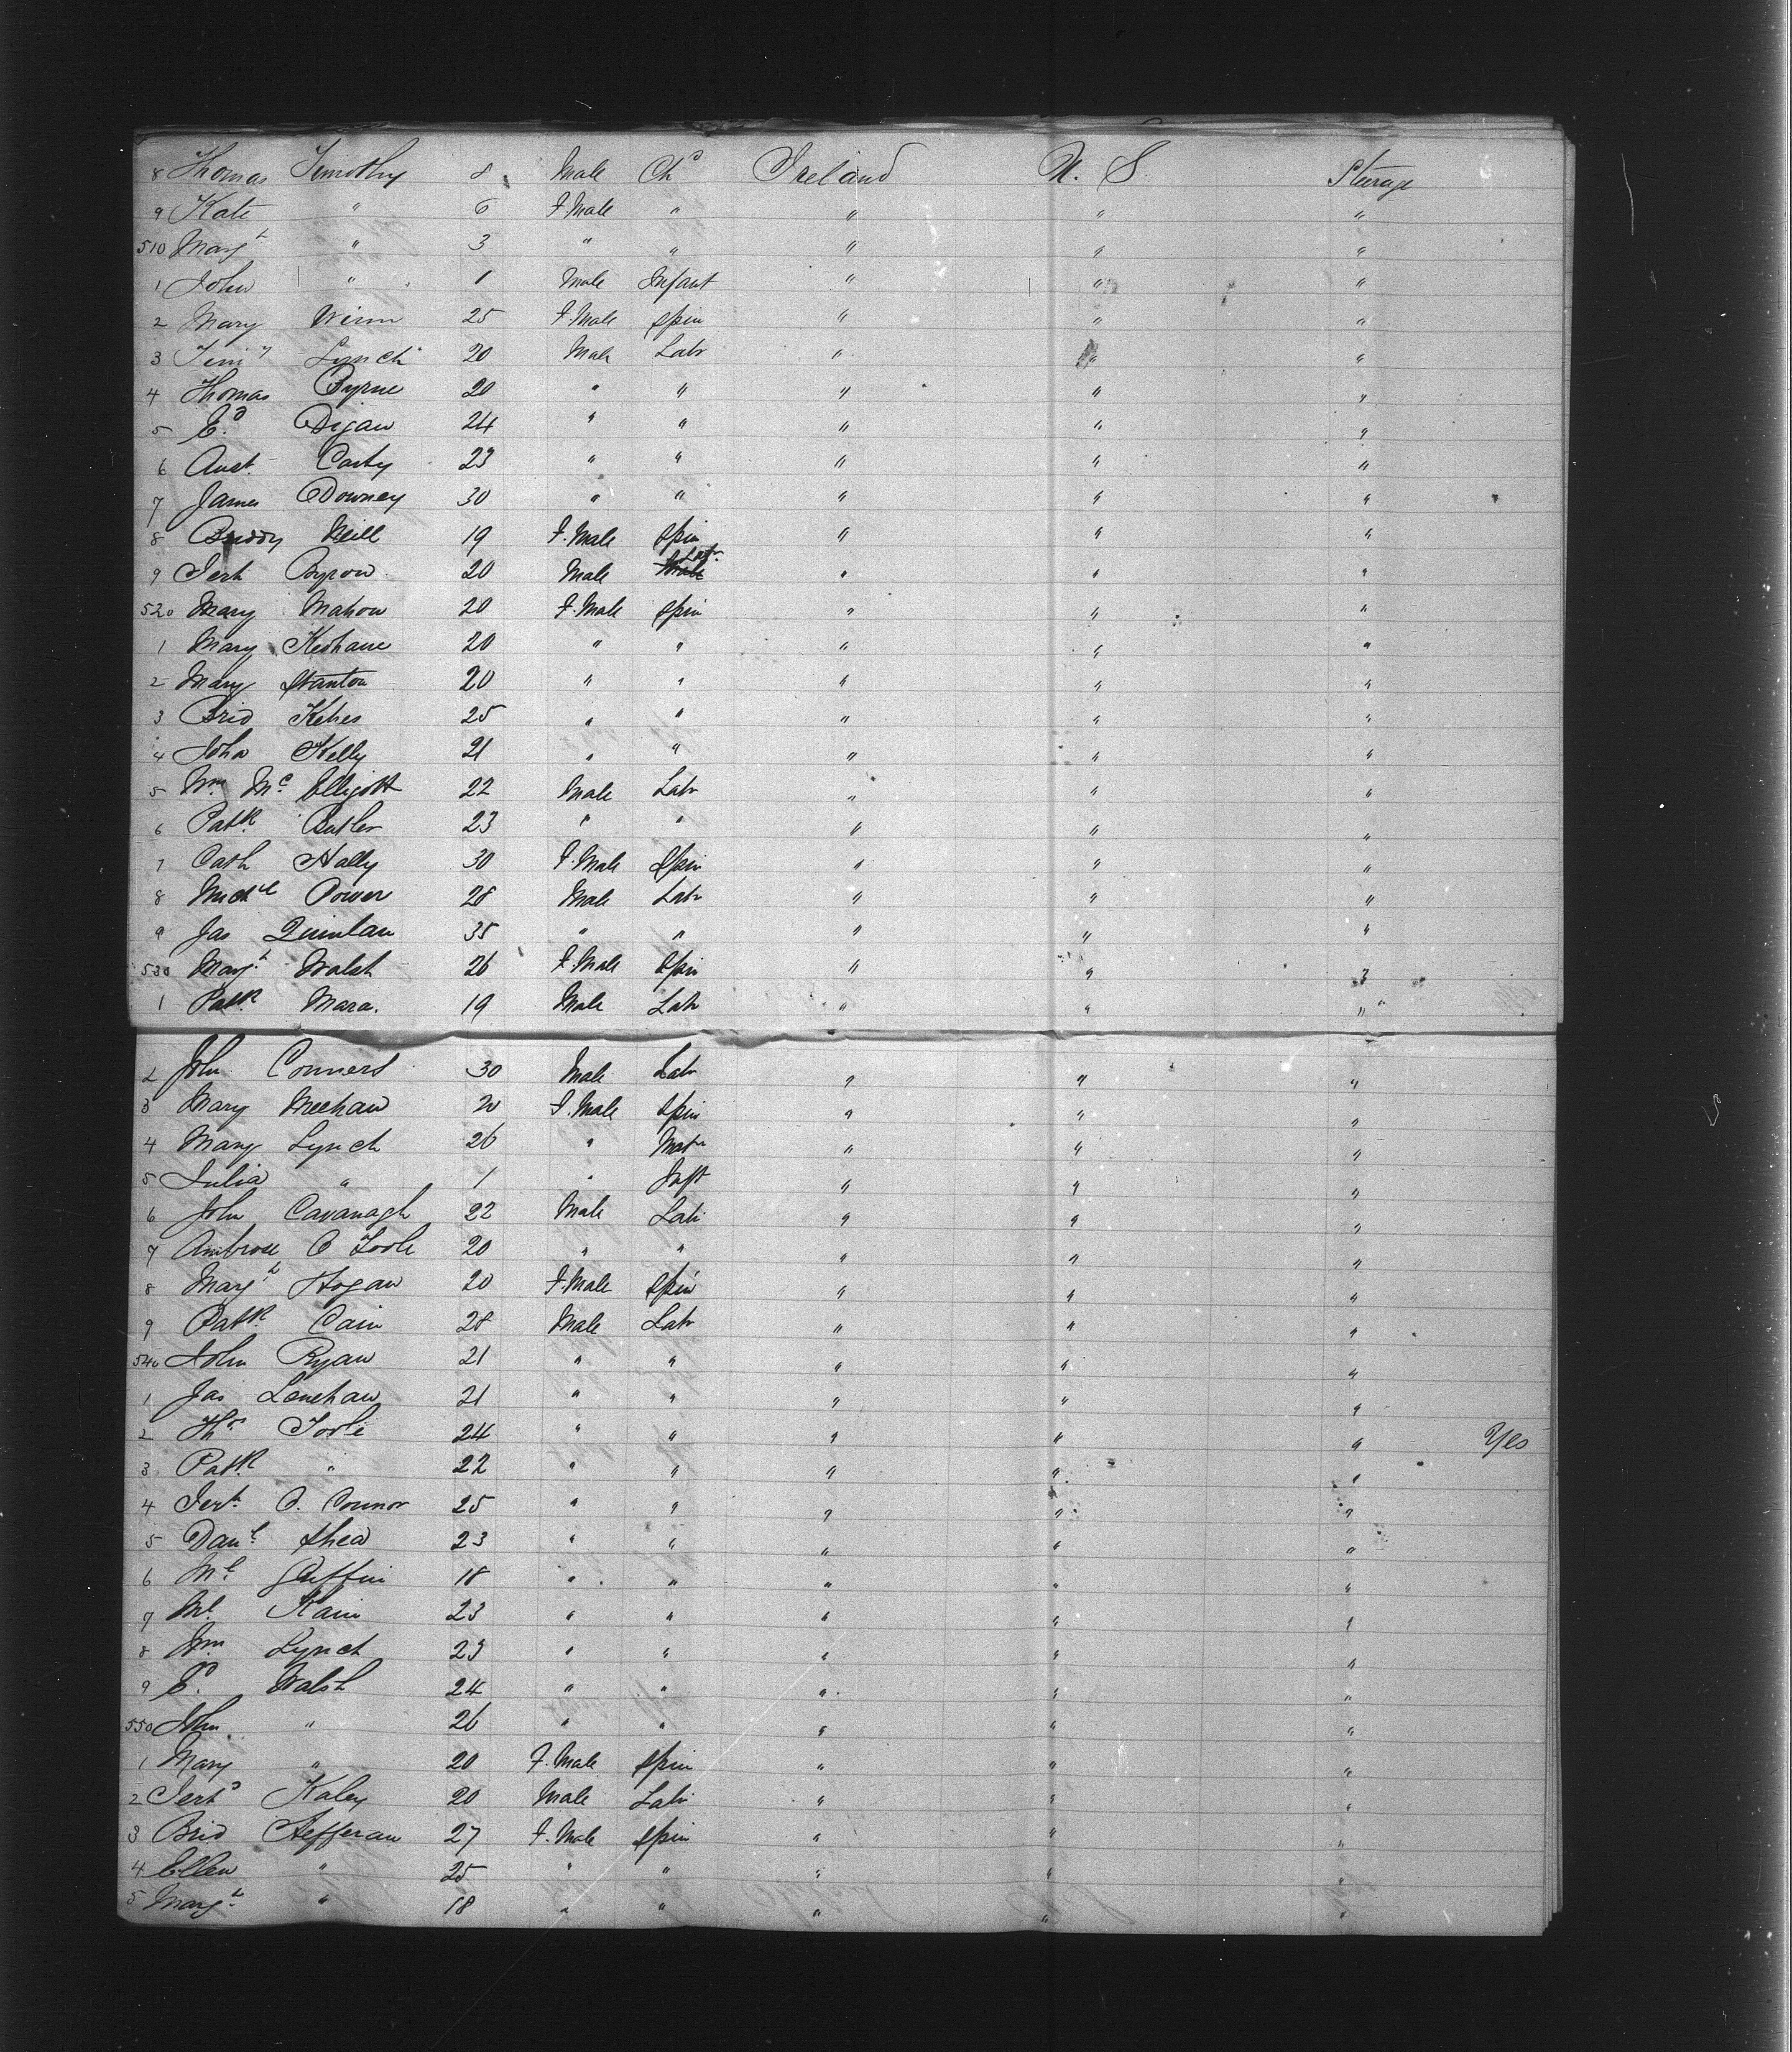 8 Thomas Timothy 8 Male Chd Ireland U. S Steerage
9 Kate " 6 F Male " " " "
510 Margt " 3 " " " " "
1 John " 1 Male Infant " " "
2 Mary Winn 25 F. Male Spin " " "
3 Timy Lynch 20 Male Labr " " "
4 Thomas Byrne 20 " " " " "
5 Ed. Digan 24 " " " " "
6 Aust. Carty 23 " " " " "
7 James Downey 30 " " " " "
8 Briddy Neill 19 F. Male Spin " " "
9 Jerh Byron 20 Male Labr " " "
520 Mary Mahon 20 F. Male Spin " " "
1 Mary Keohane 20 " " " " "
2 Mary Stanton 20 " " " " "
3 Brid Kehes 25 " " " " "
4 Joha Kelly 21 " " " " "
5 Wm McElligott 22 Male Labr " " "
6 Patk Butler 23 " " " " "
7 Cath Hally 30 F. Male Spin " " "
8 Michl Power 28 Male Labr " " "
9 Jas Quinlan 35 " " " " "
530 Margt Walsh 26 F. Male Spin " " "
1 Patk Mara. 19 Male Labr " " "
2 John Conners 30 Male Labr " " "
3 Mary Meehan 20 F. Male Spin " " "
4 Mary Lynch 26 " Matn " " "
5 Julia " 1 " Inft " " "
6 John Cavanagh 22 Male Labr " " "
7 Ambrose O Toole 20 " " " " "
8 Margt Hogan 20 F. Male Spin " " "
9 Patk Cain 28 Male Labr " " "
540 John Ryan 21 " " " " "
1 Jas Lenehan 21 " " " " "
2 Thos Toole 24 " " " " " Yes
3 Patk " 22 " " " " "
4 Jerh O. Connor 25 " " " " "
5 Danl Shea 23 " " " " "
6 Ml Griffin 18 " " " " "
7 Ml Kain 23 " " " " "
8 Wm Lynch 23 " " " " "
9 Ed. Walsh 24 " " " " "
550 John " 26 " " " " "
1 Mary " 20 F. Male Spin " " "
2 Jerh Kaley 20 Male Labr " " "
3 Brid Hefferan 27 F. Male Spin " " "
4 Ellen " 25 " " " " "
5 Margt " 18 " " " " "